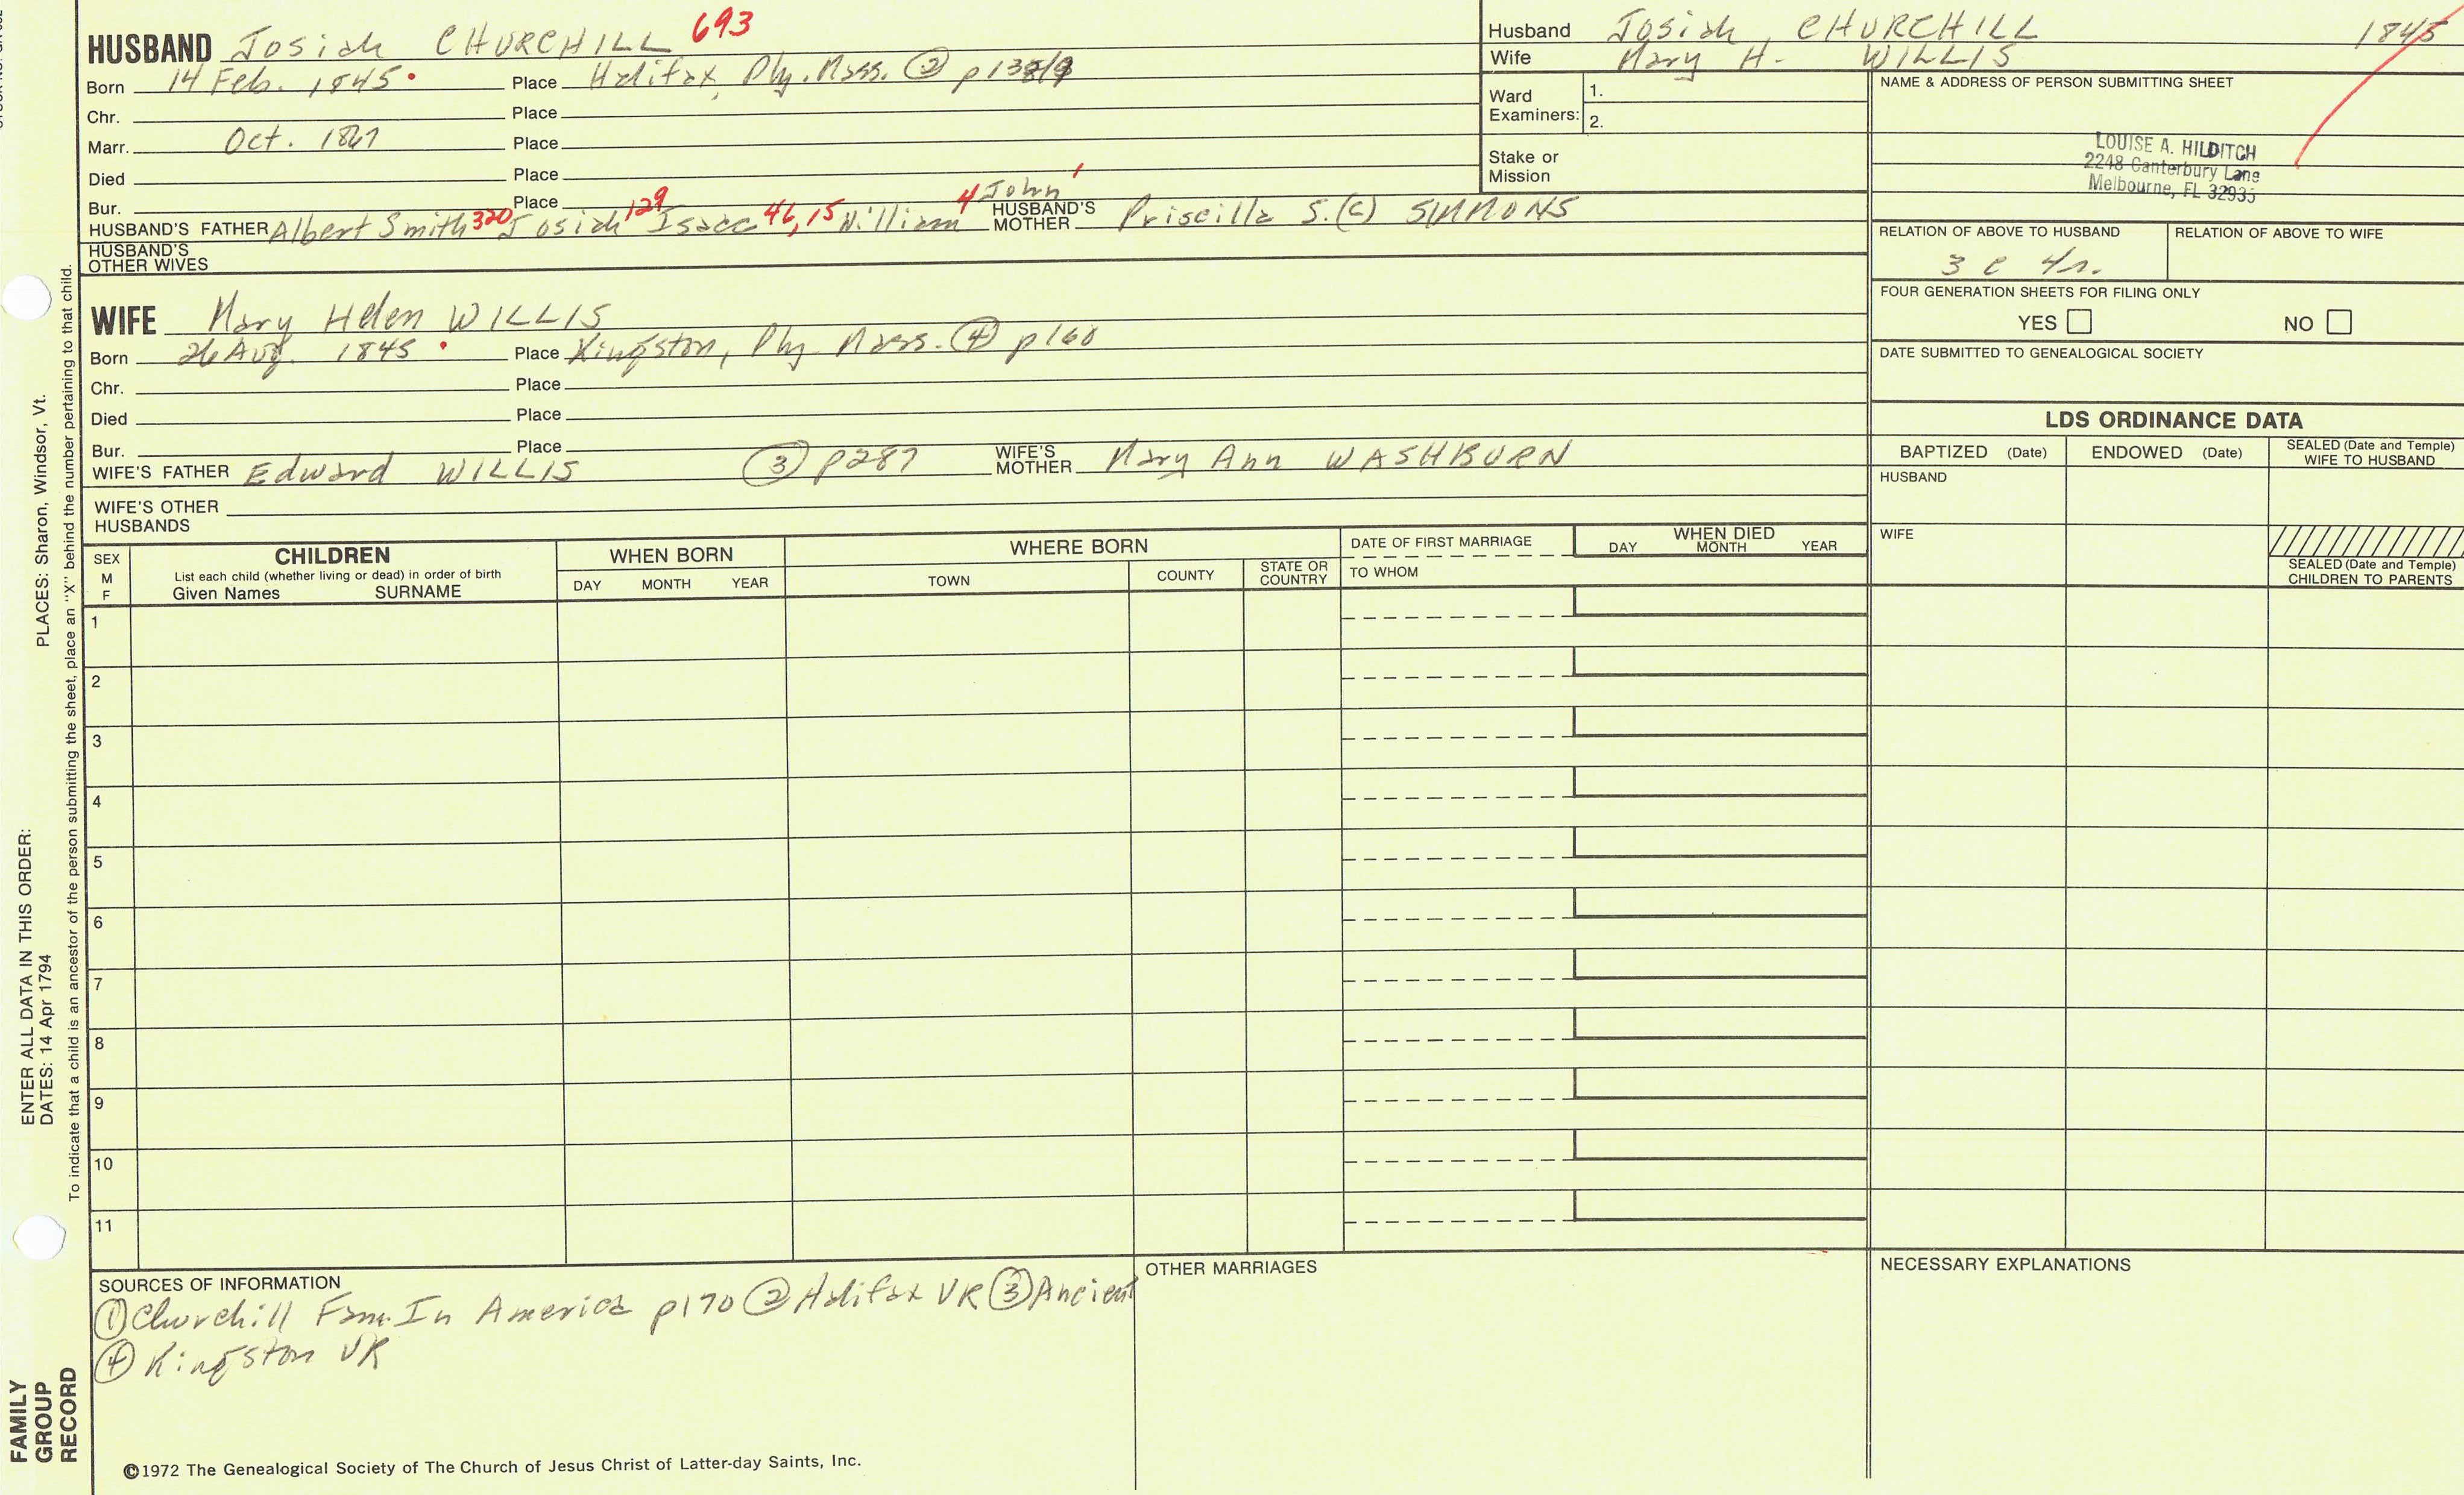 HUSBAND Josiah CHURCHILL 693
Born 14 Feb. 1845. Place Halifax, Ply. Mass. ② p
Chr. Place
Marr. Oct. 1867 Place
Died Place
Bur. Place
HUSBAND'S FATHER Albert Smith 320 Josiah 129 Isaac 46, 15 William 4 John 1 HUSBAND'S MOTHER Priscilla S. (C) SIMMONS
HUSBAND'S OTHER WIVES
WIFE Mary Helen WILLIS
Born 26 Aug. 1845. Place Kingston, Ply Mass. ④ p160
Chr. Place
Died Place
Bur. Place
WIFE'S FATHER Edward WILLIS ③ p287 WIFE'S MOTHER Mary Ann WASHBURN
WIFE'S OTHER HUSBANDS
Husband Josiah CHURCHILL 1845
Wife Mary H. WILLIS
Ward Examiners: 1.
2.
Stake or Mission
NAME & ADDRESS OF PERSON SUBMITTING SHEET
LOUISE A. HILDITCH
2248 Canterbury Lane
Melbourne, FL 32935
RELATION OF ABOVE TO HUSBAND RELATION OF ABOVE TO WIFE
3 c 4r.
FOUR GENERATION SHEETS FOR FILING ONLY
YES NO
DATE SUBMITTED TO GENEALOGICAL SOCIETY
LDS ORDINANCE DATA
BAPTIZED (Date) ENDOWED (Date) SEALED (Date and Temple) WIFE TO HUSBAND
HUSBAND
WIFE
SEALED (Date and Temple) CHILDREN TO PARENTS
SEX M F
CHILDREN
List each child (whether living or dead) in order of birth
Given Names SURNAME
WHEN BORN
DAY MONTH YEAR
WHERE BORN
TOWN COUNTY STATE OR COUNTRY
DATE OF FIRST MARRIAGE
TO WHOM
WHEN DIED
DAY MONTH YEAR
1
2
3
4
5
6
7
8
9
10
11
SOURCES OF INFORMATION
① Churchill Fam. In America p170 ② Halifax VR ③ Ancient
④ Kingston VR
OTHER MARRIAGES
NECESSARY EXPLANATIONS
©1972 The Genealogical Society of The Church of Jesus Christ of Latter-day Saints, Inc.
ENTER ALL DATA IN THIS ORDER:
DATES: 14 Apr 1794 PLACES: Sharon, Windsor, Vt.
To indicate that a child is an ancestor of the person submitting the sheet, place an "X" behind the number pertaining to that child.
FAMILY
GROUP
RECORD